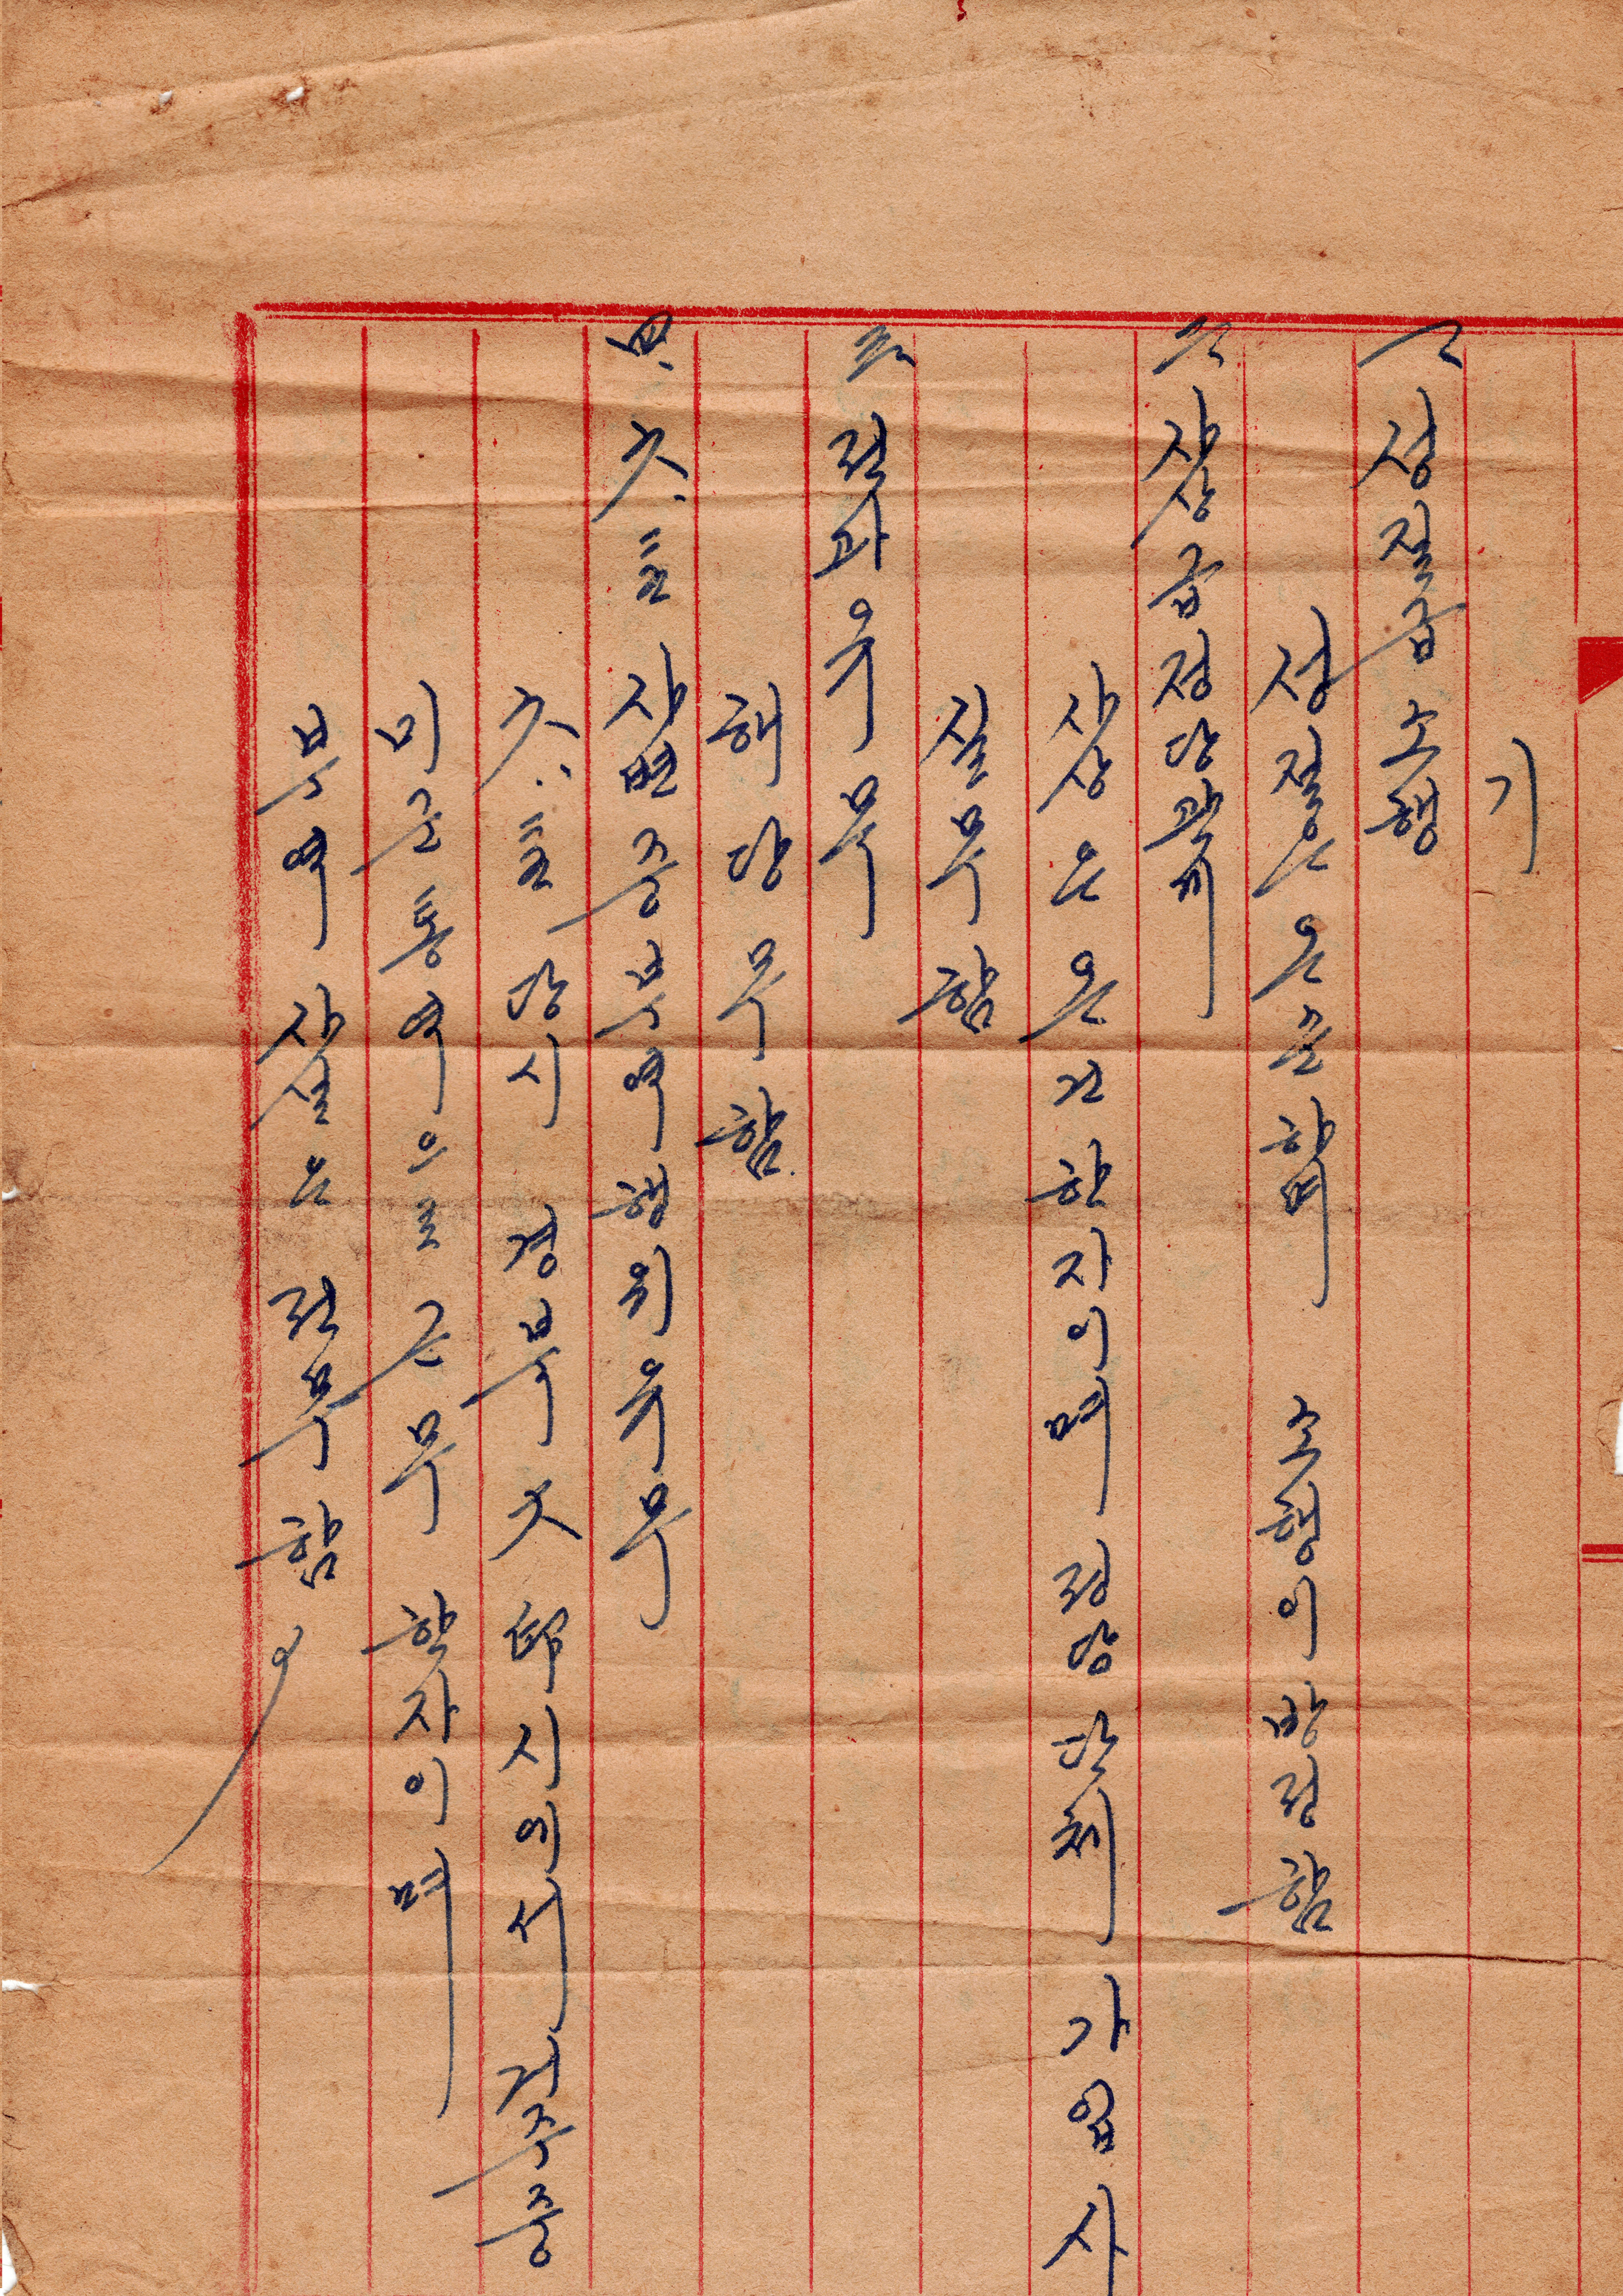 기
一 성질급 소행
성질은 온순하며 소행이 방정함
二 사상급 정당관계
사상은 온건한 자이며 정당 단체 가입 사
실 무함
三 전과 유무
해당 무함.
四. 六.二五 사변 중 부역행위 유무
六.二五 당시 경북 大邱시에서 거주중
미군 통역으로 근무한 자이며
부역 사실은 전무함